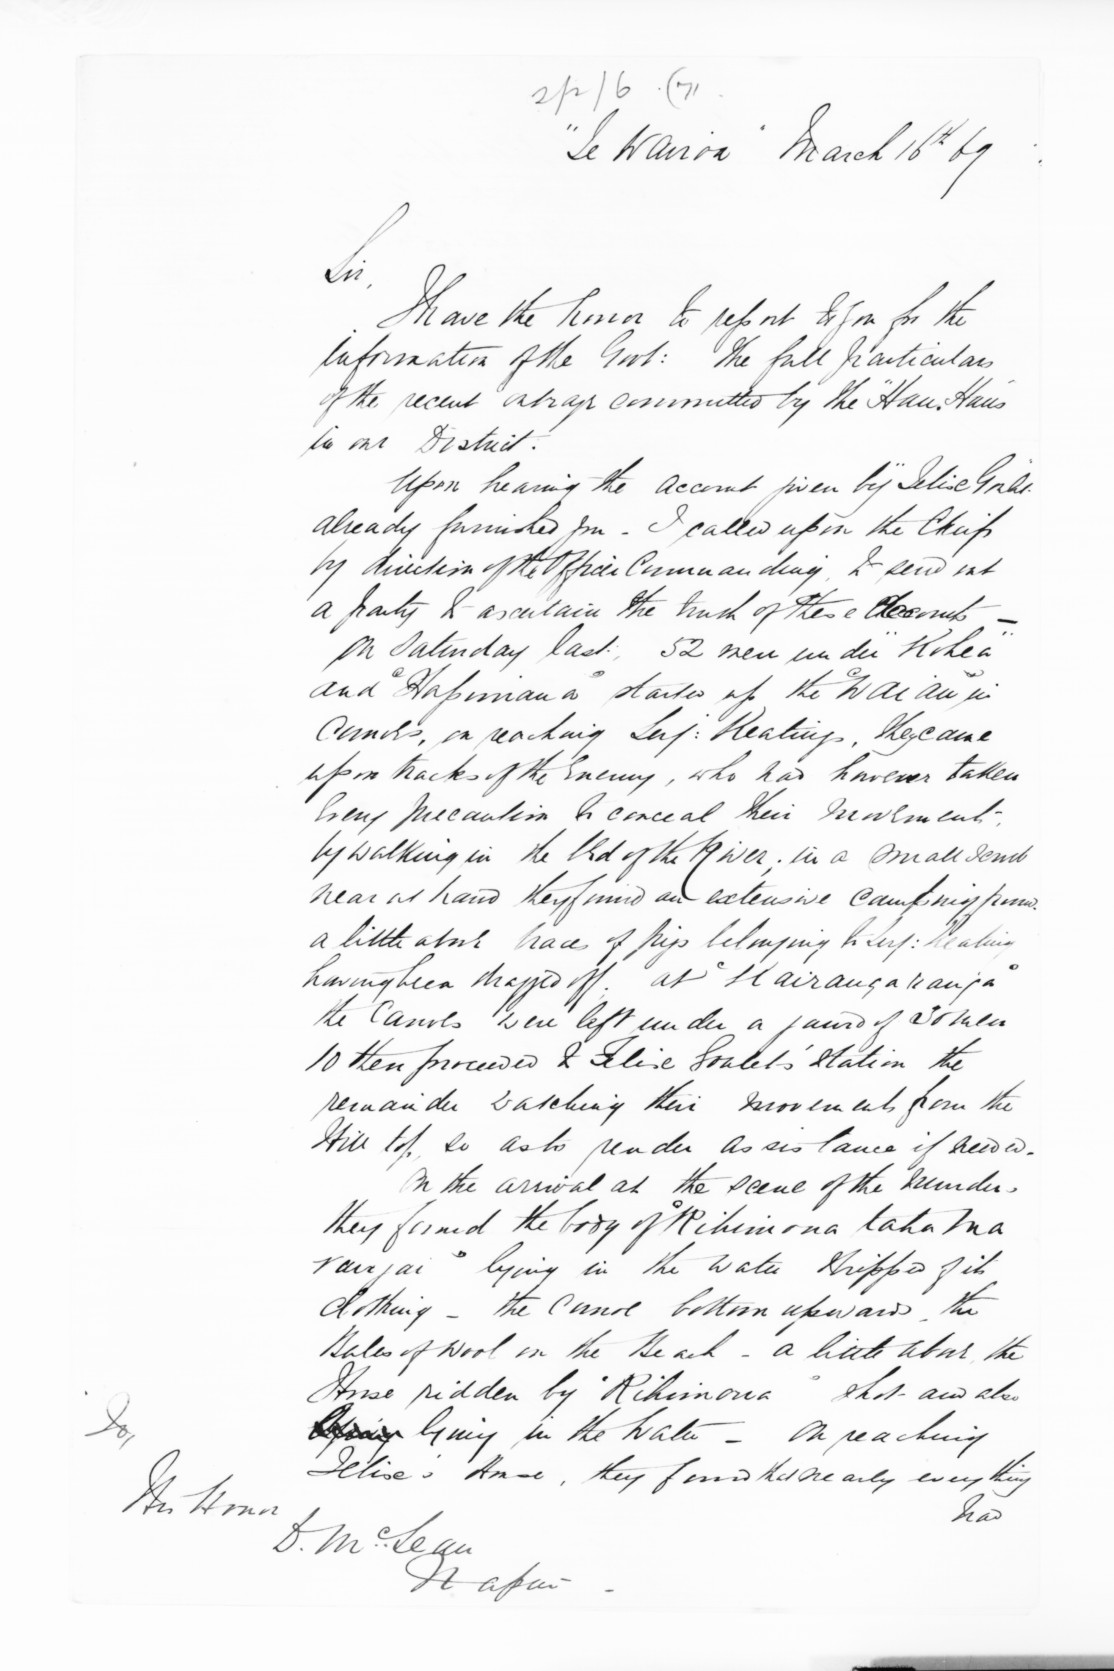 2/2/6 (7)
"Te Wairoa" March 16th 69
Sir,
I have the honor to report to you for the
information of the Govt: the full particulars
of the recent outrage committed by the "Hau. Haus"
in our District.
Upon hearing the account given by "Felise
already furnished you - I called upon the Chiefs
by direction of the Officer Commanding, to send out
a party to ascertain the truth of these accounts -
On Saturday last, 52 men under "Kohea"
and "Hapimana" started up the "Waiau" in
Canoes, on reaching Serj: Keatings, they came
upon tracks of the Enemy, who had however taken
Every precaution to conceal their movements,
by walking in the bed of the River; in a small scrub
near at hand they found an extensive camping ground.
a little above traces of pigs belonging to Serj: Keating
having been dragged off. at
the Canoes were left under a guard of 30 men
10 then proceeded to Felise Goulets' Station the
remainder watching their movements from the
Hill top, so as to render assistance if needed.
On the arrival at the scene of the murder.
they found the body of "Rihimona taha ma
rangai" lying in the water stripped of its
clothing - the Canoe bottom upwards, the
Bales of wool on the Beach - a little above, the
Horse ridden by "Rihimona" shot and also
lying in the water - On reaching
Felise's House, they found that nearly everything
had
To,
His Honor
D. McLean
Napier -